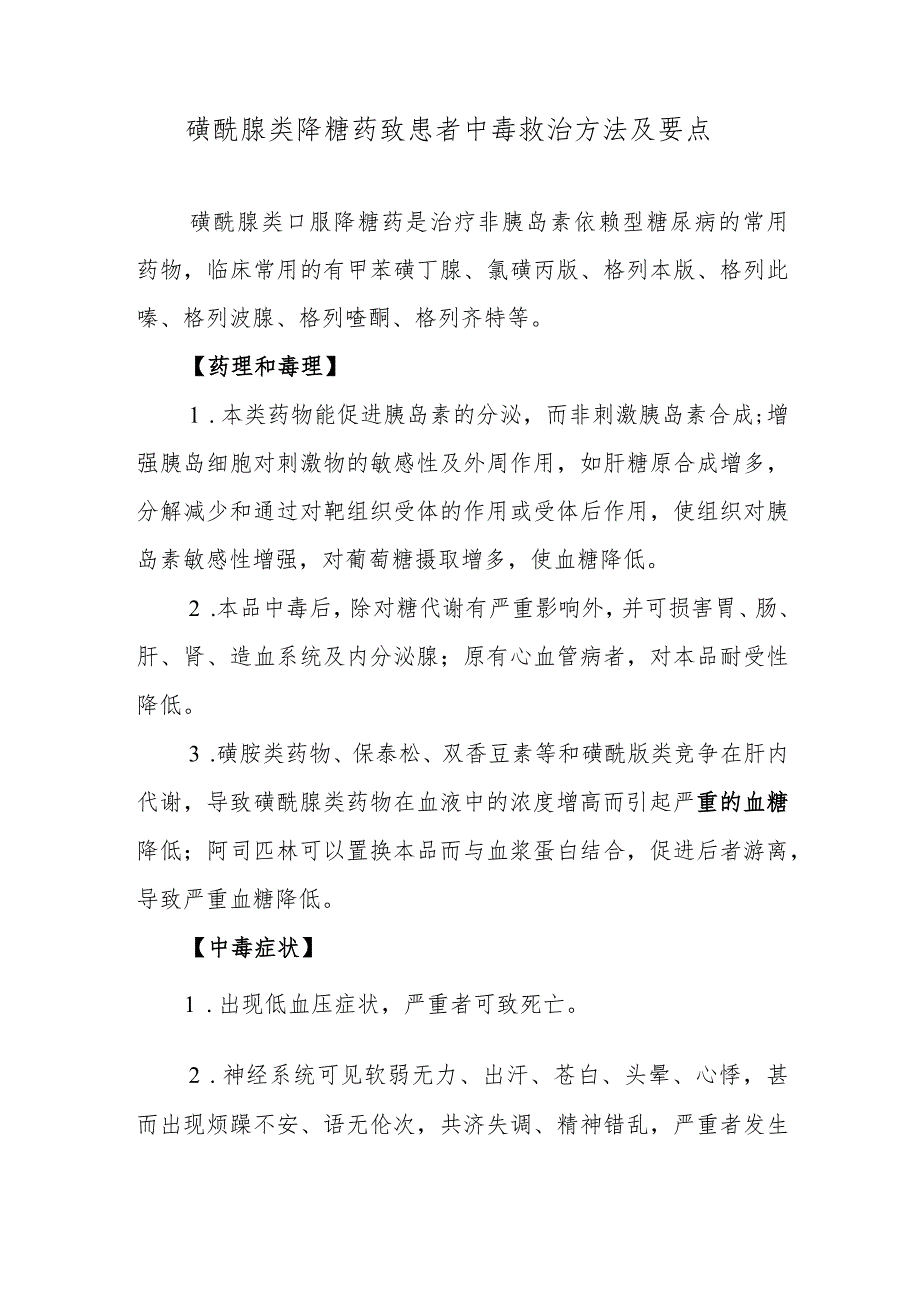 磺酰腺类降糖药致患者中毒救治方法及要点
磺酰腺类口服降糖药是治疗非胰岛素依赖型糖尿病的常用
药物，临床常用的有甲苯磺丁腺、氯磺丙版、格列本版、格列此
嗪、格列波腺、格列喳酮、格列齐特等。
【药理和毒理】
1 .本类药物能促进胰岛素的分泌，而非刺激胰岛素合成;增
强胰岛细胞对刺激物的敏感性及外周作用，如肝糖原合成增多，
分解减少和通过对靶组织受体的作用或受体后作用，使组织对胰
岛素敏感性增强，对葡萄糖摄取增多，使血糖降低。
2 .本品中毒后，除对糖代谢有严重影响外，并可损害胃、肠、
肝、肾、造血系统及内分泌腺；原有心血管病者，对本品耐受性
降低。
3 .磺胺类药物、保泰松、双香豆素等和磺酰版类竞争在肝内
代谢，导致磺酰腺类药物在血液中的浓度增高而引起严重的血糖
降低；阿司匹林可以置换本品而与血浆蛋白结合，促进后者游离，
导致严重血糖降低。
【中毒症状】
1 .出现低血压症状，严重者可致死亡。
2 .神经系统可见软弱无力、出汗、苍白、头晕、心悸，甚
而出现烦躁不安、语无伦次，共济失调、精神错乱，严重者发生